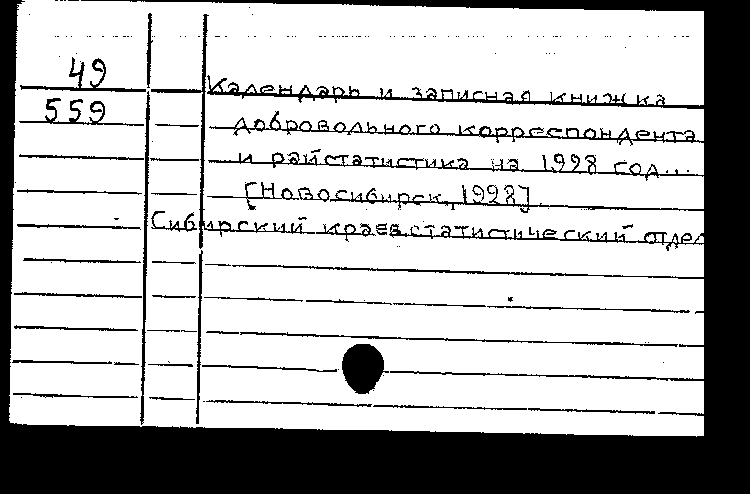 49
559
Календарь и записная книжка
добровольного корреспондента
и райстатистика на 1928 год...
[Новосибирск, 1928]
Сибирский краев.статистический отдел